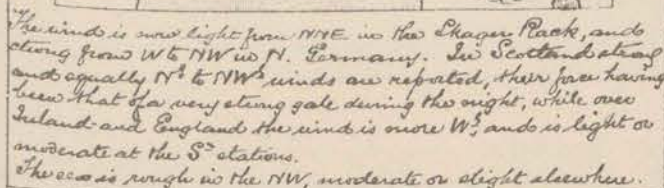 The wind is now light from NNE in the Skager Rack, and
strong from W to NW in N. Germany. In Scotland strong
and equally Nˡʸ to NWˡʸ winds are reported, their force having
been that of a very strong gale during the night, while over
Ireland and England the wind is more Wˡʸ and is light or
moderate at the Sⁿ stations.
The sea is rough in the NW, moderate or slight elsewhere.